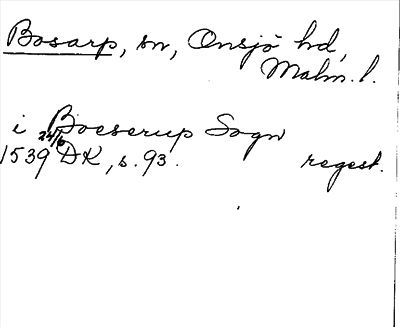 Bosarp, sn, Onsjö hd,
Malm. l.
i Boeserup Sogn
1539 24/6 DK, s. 93. regest.